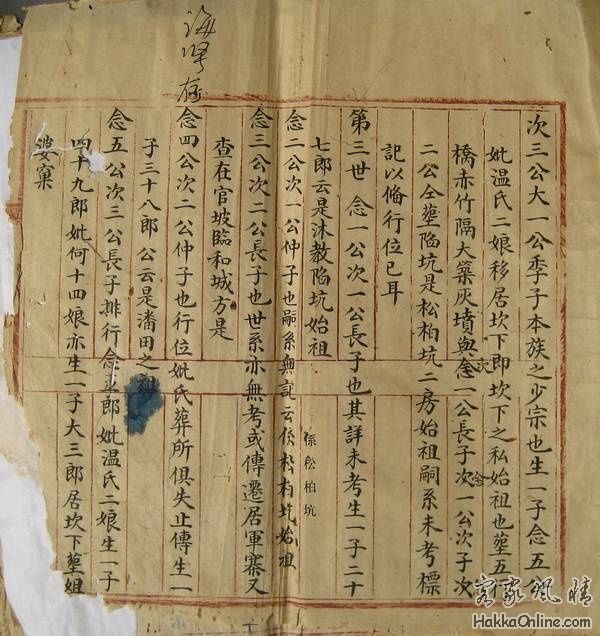 次三公大一公季子本族之少宗也生一子念五公
妣温氏二娘移居坎下即坎下之私始祖也塟五行
橋赤竹隔大築灰墳與念一公長子次一公次子次
二公仝塟陷坑是松柏坑二房始祖嗣系未考標
記以俻行位已耳
第三世 念一公次一公長子也其詳未考生一子二十
七郎云是沐教陷坑始祖
念二公次一公仲子也嗣系無記云係松柏坑始祖
係松柏坑
念三公次二公長子也世系亦無考或傳遷居軍寨又
查在官坡臨和城方是
念四公次二公仲子也行位妣氏葬所俱失止傳生一
子三十八郎公云是潘田之祖
念五公次三公長子排行念五郎妣温氏二娘生一子
四十九郎妣何十四娘亦生一子大三郎居坎下塟姐
婆窠
客家風情
HakkaOnline.com